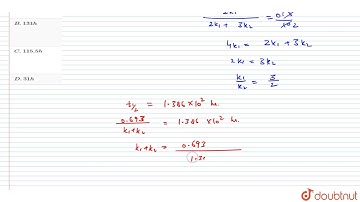 B. 131h
C. 115.5h
D. 31h
2k1 / 2k1 + 3k2 =
4k1 = 2k1 + 3k2
2k1 = 3k2
k1/k2 = 3/2
t1/2 = 1.386 × 10² hr.
0.693 / k1+k2 = 1.386 × 10² hr.
k1+k2 = 0.693 / 1.3
doubtnut